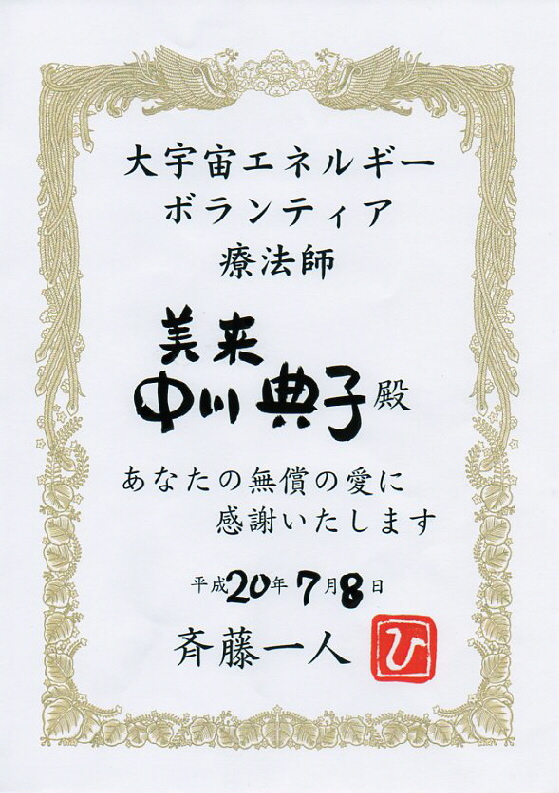 大宇宙エネルギー
ボランティア
療法師
美来
中川典子殿
あなたの無償の愛に
感謝いたします
平成20年7月8日
斉藤一人
ひ